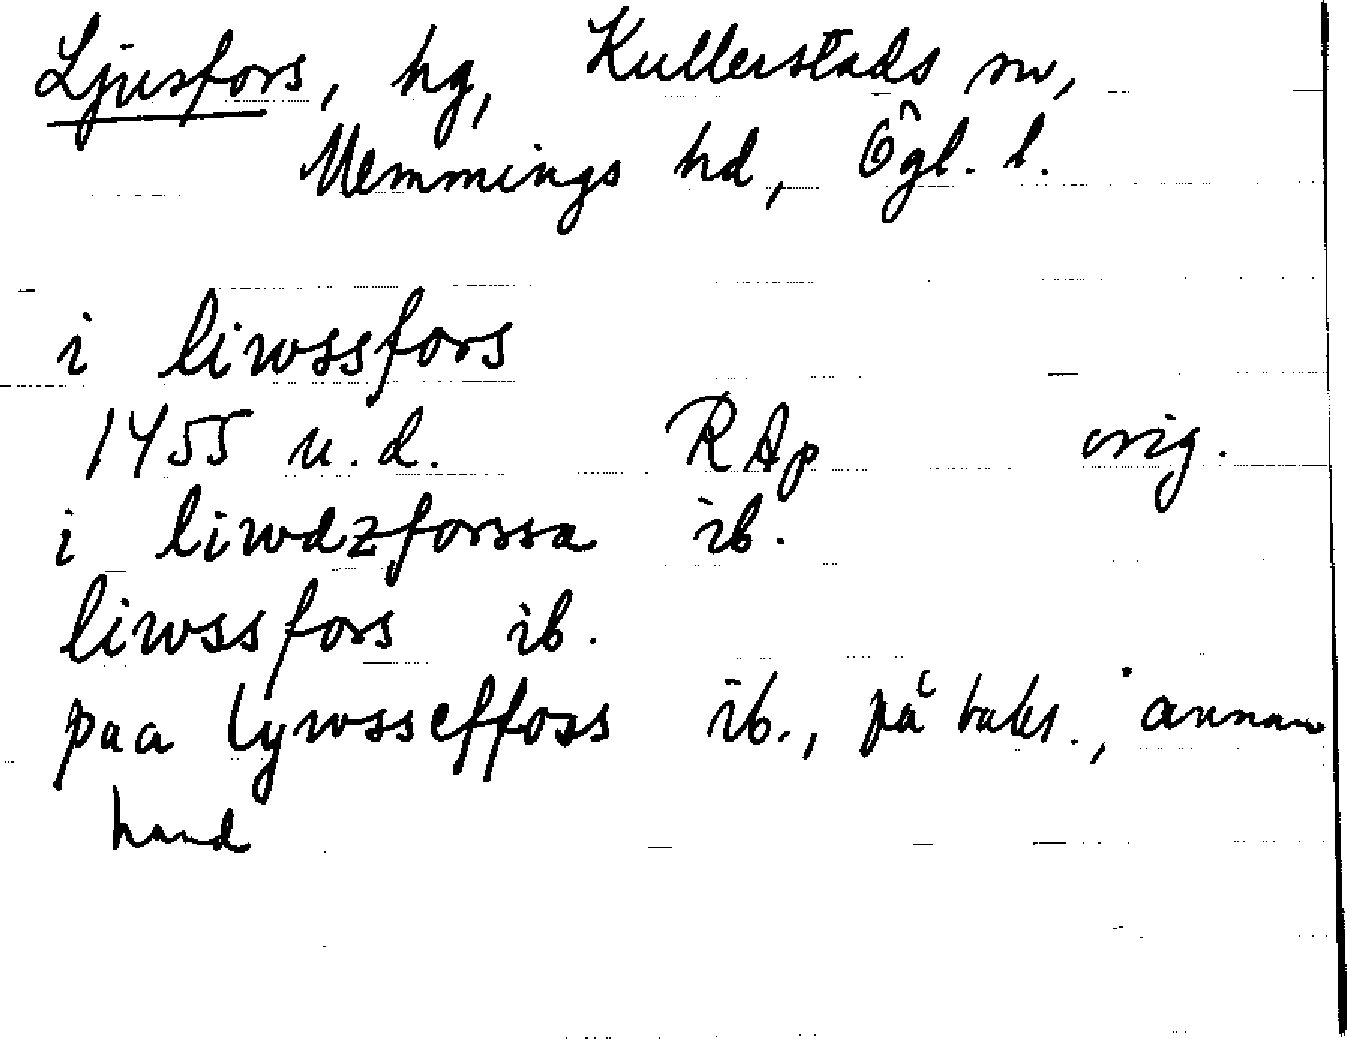 Ljusfors, hg, Kullerstads sn,
Memmings hd, Ögl. l.
i liwssfors
1455 u.d. RAp orig.
i liwdzforssa ib.
liwssfors ib.
paa lywsseffoss ib., på baks., annan
hand